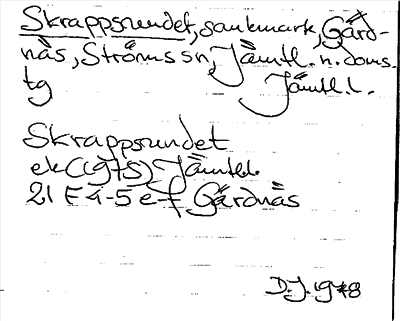 Skrappsundet, sankmark, Gård-
näs, Ströms sn, Jämtl. n. doms.
tg Jämtl. l.
Skrappsundet
ek (1975) Jämtl.
21 E 4-5 e-f Gårdnäs
D.J. 1978